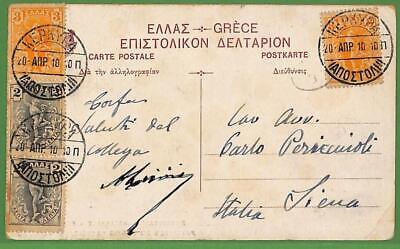 ΕΛΛΑΣ – GRÈCE
ΕΠΙΣΤΟΛΙΚΟΝ ΔΕΛΤΑΡΙΟΝ
CARTE POSTALE
POSTKARTE
Διὰ τὴν ἀλληλογραφίαν
Διεύθυνσις
ΚΕΡΚΥΡΑ
20-ΑΠΡ.10 10Π
(ΑΠΟΣΤΟΛΗ)
ΚΕΡΚΥΡΑ
20-ΑΠΡ.10 10Π
(ΑΠΟΣΤΟΛΗ)
ΚΕΡΚΥΡΑ
20-ΑΠΡ.10 10Π
(ΑΠΟΣΤΟΛΗ)
3
3
2
Corfu
Saluti del
collega
Avv.
Carlo
Siena
Italia